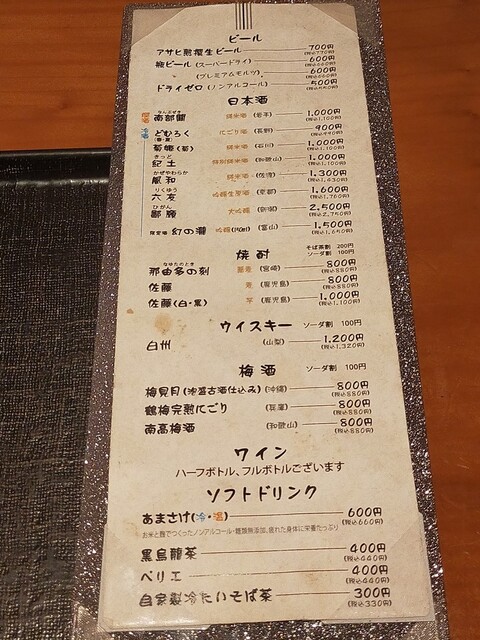 ビール
アサヒ熟撰生ビール 700円 (税込770円)
瓶ビール (スーパードライ) 600円 (税込660円)
(プレミアムモルツ) 600円 (税込660円)
ドライゼロ (ノンアルコール) 500円
日本酒
なんぶぜき
南部関 純米酒 (岩手) 1,000円 (税込1,100円)
冷酒 どむろく にごり酒 (長野) 900円
菊姫(菊) 純米酒 (石川) 1,000円 (税込1,100円)
きっど
紀土 特別純米酒 (和歌山) 1,000円 (税込1,100円)
かぜやわらか
風和 純米酒 (佐渡) 1,300円 (税込1,430円)
りくゆう
六友 吟醸生原酒 (京都) 1,600円 (税込1,760円)
ひがん
大吟醸 2,500円 (税込2,750円)
限定酒 幻の瀧 吟醸 (富山) 1,500円 (税込1,650円)
焼酎 そば茶割 200円
ソーダ割 100円
なゆたのとき
那由多の刻 蕎麦 (宮崎) 800円 (税込880円)
佐藤 麦 (鹿児島) 800円 (税込880円)
佐藤(白・黒) 芋 (鹿児島) 1,000円 (税込1,100円)
ウイスキー ソーダ割 100円
白州 (山梨) 1,200円 (税込1,320円)
梅酒 ソーダ割 100円
梅見月(泡盛古酒仕込み) (沖縄) 800円 (税込880円)
鶴梅完熟にごり 800円 (税込880円)
南高梅酒 (和歌山) 800円 (税込880円)
ワイン
ハーフボトル、フルボトルございます
ソフトドリンク
あまさけ(冷・温) 600円 (税込660円)
お米と麹でつくったノンアルコール・糖類無添加。疲れた身体に栄養たっぷり
黒烏龍茶 400円 (税込440円)
ペリエ 400円 (税込440円)
自家製冷たいそば茶 300円 (税込330円)